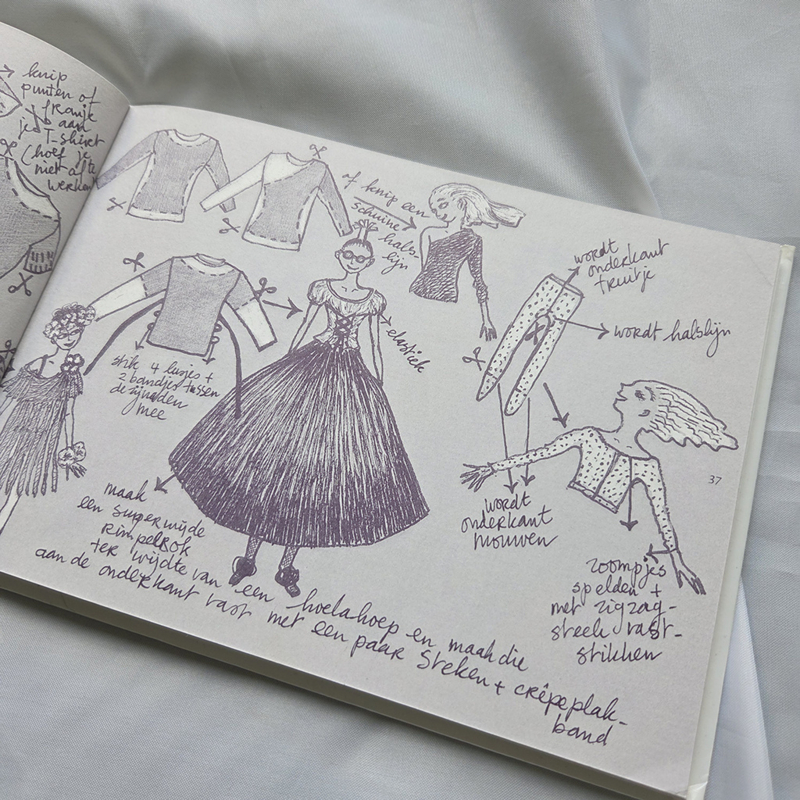 knip
punten of
franje
aan
je
T-shirt
(hoef je
niet af te
werken
of knip een
schuine
hals
lijn
wordt
onderkant
truitje
wordt halslijn
elastiek
stik 4 lusjes +
2 bandjes tussen
de zijnaden
mee
37
maak
een superwijde
rimpelrok
ter wijdte van een hoelahoep en maak die
aan de onderkant vast met een paar steken + crêpeplak-
band
wordt
onderkant
mouwen
zoompjes
spelden +
met zigzag-
steek vast-
stikken